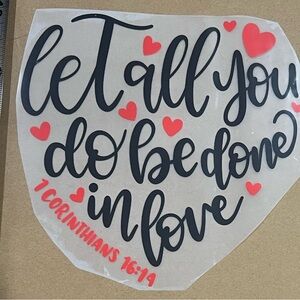 let all you
do be done
in love
1 CORINTHIANS 16:14